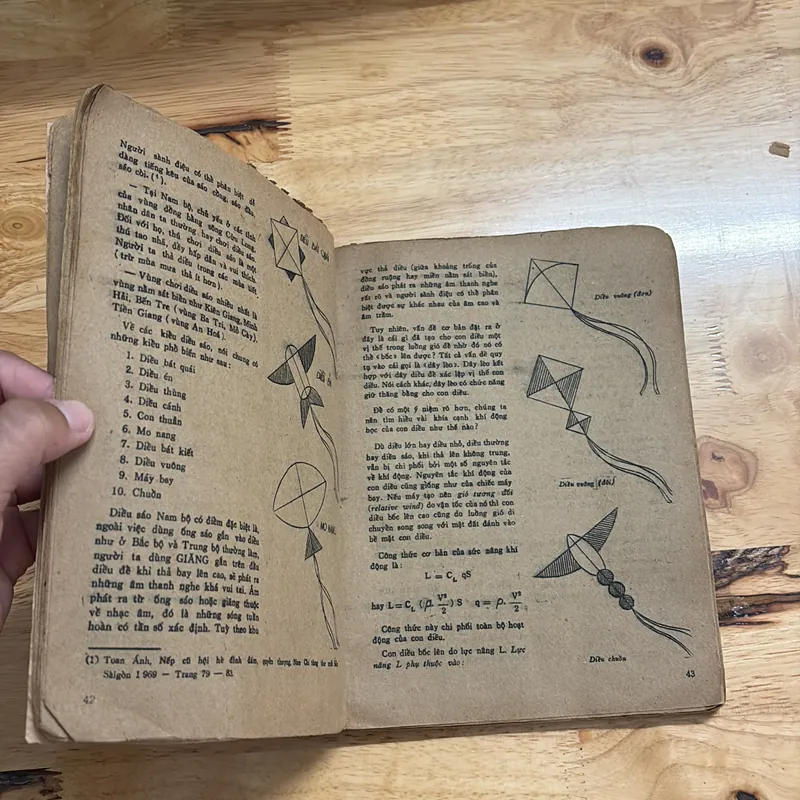 Người sành điệu có thể phân biệt dễ
dàng tiếng kêu của sáo cồng, sáo đẩu,
sáo còi. (¹).
— Tại Nam bộ, chủ yếu ở các tỉnh
của vùng đồng bằng sông Cửu Long,
nhân dân ta thường hay chơi diều sáo.
Đối với họ, thú chơi diều sáo là một
thú tao nhã, đầy hấp dẫn và vui thích.
Người ta thả diều trong các mùa tiết
(trừ mùa mưa thả ít hơn).
— Vùng chơi diều sáo nhiều nhất là
vùng nằm sát biển như Kiên Giang, Minh
Hải, Bến Tre (vùng Ba Tri, Mỏ Cày),
Tiền Giang (vùng An Hoá).
Về các kiểu diều sáo, nói chung có
những kiểu phổ biến như sau :
1. Diều bát quái
2. Diều én
3. Diều thùng
4. Diều cánh
5. Con thuẫn
6. Mo nang
7. Diều bát kiết
8. Diều vuông
9. Máy bay
10. Chuồn
Diều sáo Nam bộ có điểm đặc biệt là,
ngoài việc dùng ống sáo gắn vào diều
như ở Bắc bộ và Trung bộ thường làm,
người ta dùng GIĂNG gắn trên đầu
diều để khi thả bay lên cao, sẽ phát ra
những âm thanh nghe khá vui tai. Âm
phát ra từ ống sáo hoặc giăng thuộc
về nhạc âm, đó là những sóng tuần
hoàn có tần số xác định. Tuỳ theo khu
(1) Toan Ánh, Nếp cũ hội hè đình đám, quyển thượng, Nam Chi tùng thư xuất bản
Sàigòn 1969 — Trang 79 — 83.
42
DIỀU BÁT QUÁI
DIỀU ÉN
MO NANG
vực thả diều (giữa khoảng trống của
đồng ruộng hay miền nằm sát biển),
diều sáo phát ra những âm thanh nghe
rất rõ và người sành điệu có thể phân
biệt được sự khác nhau của âm cao và
âm trầm.
Tuy nhiên, vấn đề cơ bản đặt ra ở
đây là cái gì đã tạo cho con diều một
vị thế trong luồng gió để nhờ đó nó có
thể «bốc» lên được? Tất cả vấn đề quy
tụ vào cái gọi là «dây lèo». Dây lèo kết
hợp với dây diều để xác lập vị thế con
diều. Nói cách khác, dây lèo có chức năng
giữ thăng bằng cho con diều.
Để có một ý niệm rõ hơn, chúng ta
nên tìm hiểu vài khía cạnh khí động
học của con diều như thế nào?
Dù diều lớn hay diều nhỏ, diều thường
hay diều sáo, khi thả lên không trung,
vẫn bị chi phối bởi một số nguyên tắc
về khí động. Nguyên tắc khí động của
con diều cũng giống như của chiếc máy
bay. Nếu máy tạo nên gió tương đối
(relative wind) do vận tốc của nó thì con
diều bốc lên cao cũng do luồng gió di
chuyển song song với mặt đất đánh vào
bề mặt con diều.
Công thức cơ bản của sức nâng khí
động là :
L = C_L qS
hay L = C_L (ρ. V²/2) S q = ρ. V²/2.
Công thức này chi phối toàn bộ hoạt
động của con diều.
Con diều bốc lên do lực nâng L. Lực
nâng L phụ thuộc vào :
Diều vuông (đơn)
Diều vuông (đôi)
Diều chuồn
43